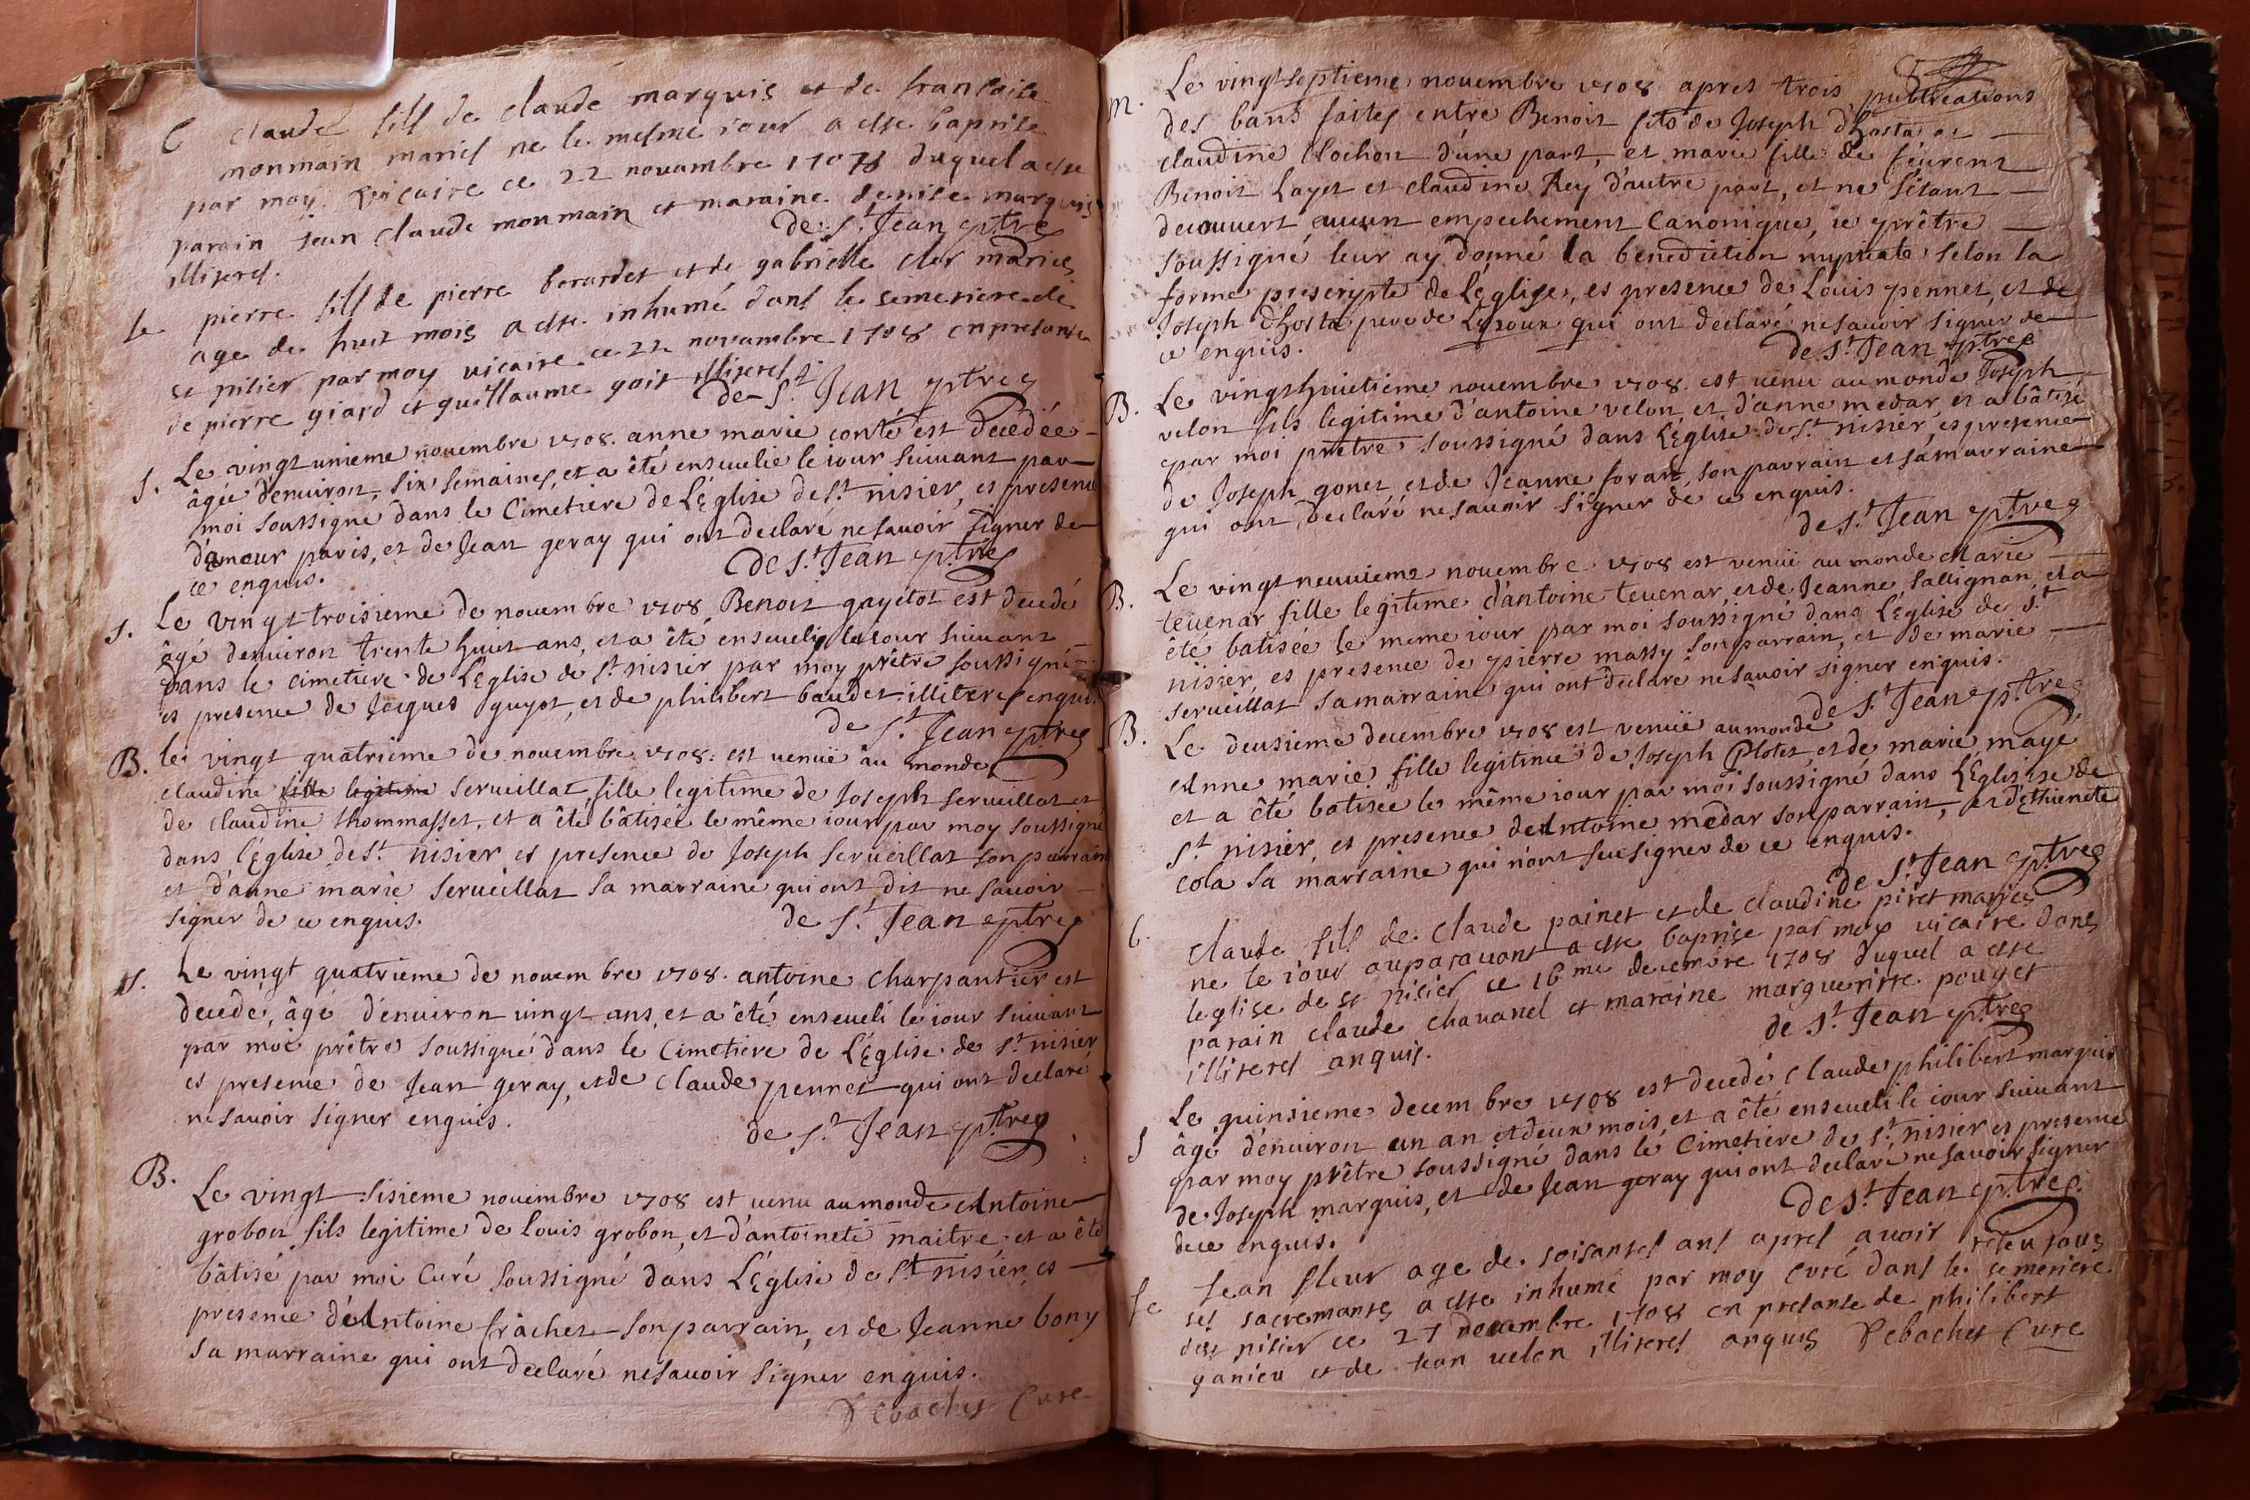 b claude fils de claude marquis et de francoise
monmain mariés ne le mesme iour a este baptise
par moy vicaire ce 22 novambre 1708 duquel a este
parain jean claude monmain et maraine denise marquis
illiterés.
de St. Jean ptre
Se pierre fils de pierre berardet et de gabrielle cler mariés
age de huit mois a este inhumé dans le semetiere de
st nisier par moy vicaire ce 22 novambre 1708 en presance
de pierre giard et guillaume goit illiterés.
de St. Jean ptre
S. Le vingt unieme nouembre 1708. anne marie conté est décédée
âgée d'enuiron six semaines, et a êté enseuelie le iour suiuant par
moi soussigné dans le Cimetiere de L'église de St. nisier, es presence
d'amour paris, et de Jean geray qui ont declaré ne sauoir signer de
ce enquis.
de St. Jean ptre
S. Le vingt troisieme de nouembre 1708 Benoit gayetot est decedé
âgé denuiron trente huit ans, et a êté enseueli le iour suiuant
dans le cimetiere de L'Eglise de St. nisier par moy prêtre soussigné
es presence de Jacques guyot, et de philibert baudet illiterés enquis.
de St. Jean ptre
B. le vingt quatrieme de nouembre 1708. est venuë au monde
claudine fille legitime serueillat, fille legitime de Joseph serueillat et
de claudine thommasset, et a êté bâtisée le même iour par moy soussigné
dans l'Eglise de St. nisier es presence de Joseph serueillat son parrain
et d'anne marie serueillat sa marraine qui ont dit ne sauoir
signer de ce enquis.
de St. Jean ptre
S. Le vingt quatrieme de nouembre 1708. antoine charpantier est
decedé, âgé d'enuiron vingt ans, et a êté enseueli le iour suiuant
par moi prêtre soussigné dans le Cimetiere de L'Eglise de St. nisier
es presence de Jean geray, et de claude pennet qui ont declaré
ne sauoir signer enquis.
de St. Jean ptre
B. Le vingt sisieme nouembre 1708 est uenu au monde Antoine
grobon fils legitime de Louis grobon, et d'antoineté maitre et a êté
bâtisé par moi Curé soussigné dans L'Eglise de St. nisier, es
presence d'Antoine frâchet son parrain, et de Jeanne bony
sa marraine qui ont declaré ne sauoir signer enquis.
Debachet Curé
m. Le vingt septieme nouembre 1708 apres trois publications
des bans faites entre Benoit fils de Joseph d'hosta et
claudine Clochon d'une part, et marie fille de feurent
Benoit Layet et claudine Rey d'autre part, et ne s'etant
decouuert aucun empechement Canonique, ie prêtre
soussigné leur ay donné la benediction nuptiale selon la
forme prescripte de L'église, es presence de Louis pennet, et de
Joseph d'hosta pere de L'epoux qui ont declaré ne sauoir signer de
ce enquis.
de St. Jean ptre
B. Le vingt huitieme nouembre 1708. est uenu au monde Joseph
velon fils legitime d'antoine velon et d'anne medar, et a bâtisé
par moi prêtre soussigné dans L'église de St. nisier, es presence
de Joseph gonet et de Jeanne forax, son parrain et sa marraine
qui ont declaré ne sauoir signer de ce enquis.
de St. Jean ptre
B. Le vingt neuuieme nouembre 1708 est venuë au monde Marie
teuenar fille legitime d'antoine teuenar, et de Jeanne sallignan, et a
êté batisée le meme iour par moi soussigné dans L'église de St.
nisier, es presence de pierre massy son parrain, et de marie
serueillat sa marraine qui ont declaré ne sauoir signer enquis.
de St. Jean ptre
B. Le deusieme decembre 1708 est venuë au monde
Anne marie fille legitime de Joseph Plotet, et de marie mayé
et a êté batisée le même iour par moi soussigné dans L'Eglise de
St. nisier, es presence de Antoine medar son parrain, et d'ethienete
cola sa marraine qui n'ont sceu signer de ce enquis.
de St. Jean ptre
b. claude fils de claude painet et de claudine piret mariés
ne le iour auparavant a este baptise par moy vicaire dans
leglise de st nisier ce 16me decembre 1708 duquel a este
parain claude chavanel et maraine margueritte pouget
illiterés anquis.
de St. Jean ptre
S Le quinsieme decembre 1708 est decedé claude philibert marquis
âgé d'enuiron un an et deux mois, et a êté enseueli le iour suiuant
par moy prêtre soussigné dans le Cimetiere de St. nisier es presence
de Joseph marquis, et de Jean geray qui ont declaré ne sauoir signer
de ce enquis.
de St. Jean ptre
Se Jean fleur age de soisantes ans apres avoir reseu tous
ses sacremants a este inhumé par moy curé dans le semetiere
de st nisier ce 27 decembre 1708 en presance de philibert
ganieu et de jean velon illiterés anquis Debachet Curé